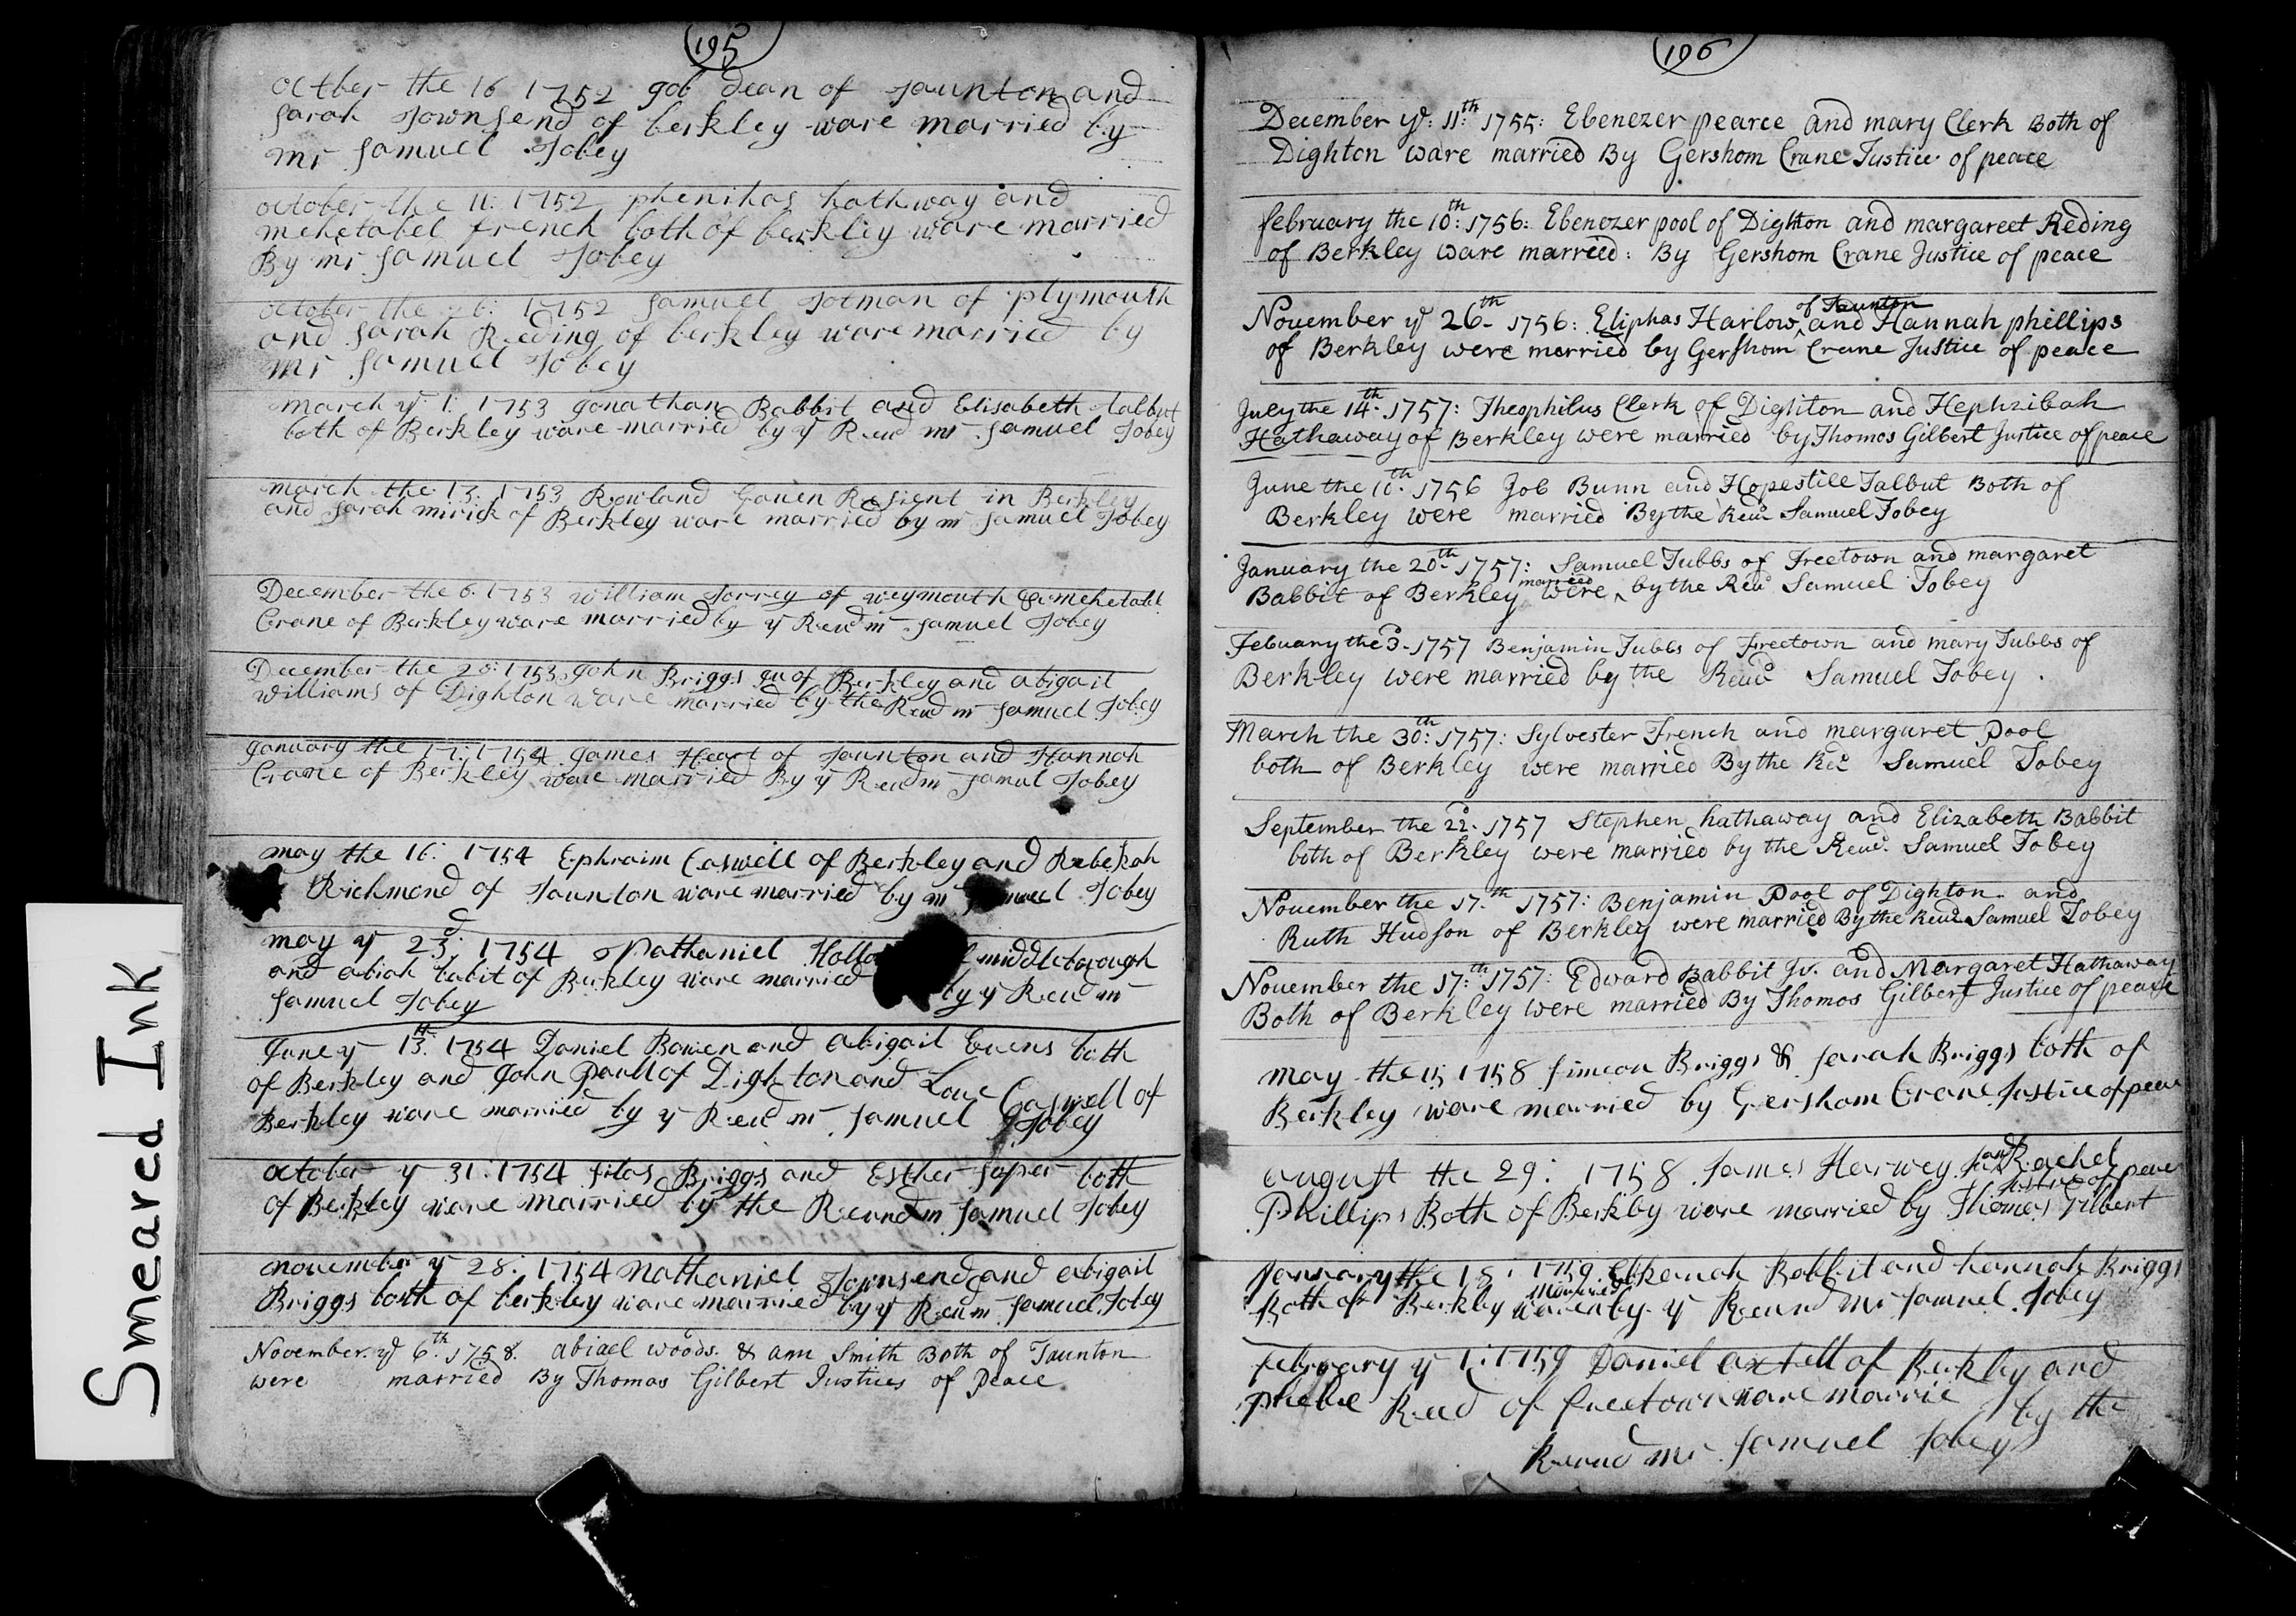 195
octber the 16 1752 gob dean of taunton and
sarah townsend of berkley ware married by
mr samuel Tobey
october the 11: 1752 phenihas hathway and
mehetabel french both of berkley ware married
By mr samuel Tobey
october the 1752 samuel totman of plymouth
and sarah Reding of berkley ware married by
mr samuel Tobey
march ye 1: 1753 gonathan Babbit and Elisabeth talbut
both of Berkley ware married by ye Reud mr samuel Tobey
march the 13: 1753 Rowland Gauen Resient in Berkley
and sarah mirick of Berkley ware married by mr samuel Tobey
December the 6: 1753 william torrey of weymouth & mehetabl
Crane of Berkley ware married by ye Reud mr samuel Tobey
December the 20: 1753 gohn Briggs gu of Berkley and abigail
williams of Dighton ware married by the Reud mr samuel Tobey
ganuary the 17: 1754 games Heart of taunton and Hannah
Crane of Berkley ware married By ye Reud mr samul Tobey
may the 16: 1754 Ephraim Caswell of Berkley and Rebekah
Richmond of taunton ware married by mr samuel Tobey
may ye 23d: 1754 Nathaniel Hollo middleborough
and abiah babit of Berkley ware married by ye Reud mr
samuel Tobey
gune ye 13th: 1754 Daniel Bowen and abigail Euens both
of Berkley and gohn paull of Dighton and Loue Caswell of
Berkley ware married by ye Reud mr samuel Tobey
october ye 31: 1754 silas Briggs and Esther soper both
of Berkley ware married by the Reund mr samuel Tobey
nouember ye 28: 1754 nathaniel Townsend and abigail
Briggs both of berkley ware married by ye Reud mr samuel Tobey
November ye 6th 1758. abiael woods. & ann Smith Both of Taunton
were married By Thomas Gilbert Justices of Peace
196
December ye: 11th: 1755: Ebenezer pearce and mary Clerk Both of
Dighton ware married By Gershom Crane Justice of peace
february the 10th: 1756: Ebenezer pool of Dighton and margareet Reding
of Berkley ware married: By Gershom Crane Justice of peace
of Taunton
November ye 26th- 1756: Eliphas Harlow ^ and Hannah phillips
of Berkley were married by Gershom Crane Justice of peace
July the 14th- 1757: Theophilus Clerk of Dighton and Hephzibah
Hathaway of Berkley were married by Thomas Gilbert Justice of peace
June the 10th- 1756 Job Bunn and Hopestill Talbut Both of
Berkley were married By the Reud Samuel Tobey
January the 20th- 1757: Samuel Tubbs of Freetown and margaret
married
Babbit of Berkley were ^ by the Reud Samuel Tobey
Febuary the 3d- 1757 Benjamin Tubbs of Freetown and mary Tubbs of
Berkley were married by the Reud Samuel Tobey.
March the 30th: 1757: Sylvester French and margaret Pool
both of Berkley were married By the Red Samuel Tobey
September the 22d- 1757 Stephen hathaway and Elizabeth Babbit
both of Berkley were married by the Reud. Samuel Tobey
November the 17th 1757: Benjamin Pool of Dighton and
Ruth Hudson of Berkley were married By the Reud Samuel Tobey
November the 17th: 1757: Edward Babbit Jr. and Margaret Hathaway
Both of Berkley were married By Thomas Gilbert Justice of peace
may the 15 1758 simeon Briggs & sarah Briggs both of
Berkley ware married by Gersham Crane Justice of peace
august the 29: 1758 James Harwey and Rachel
Justice of peace
Phillips Both of Berkley ware married by Thomas Gilbert
January the 18: 1759 Elkanah Babbit and hannah Briggs
married
Both of Berkley ware by ye Reund Mr samuel Tobey
february ye 1: 1759 Daniel axtell of Berkley and
phebe Reed of freetown ware married by the
Reund mr samuel Tobey
Smeared Ink